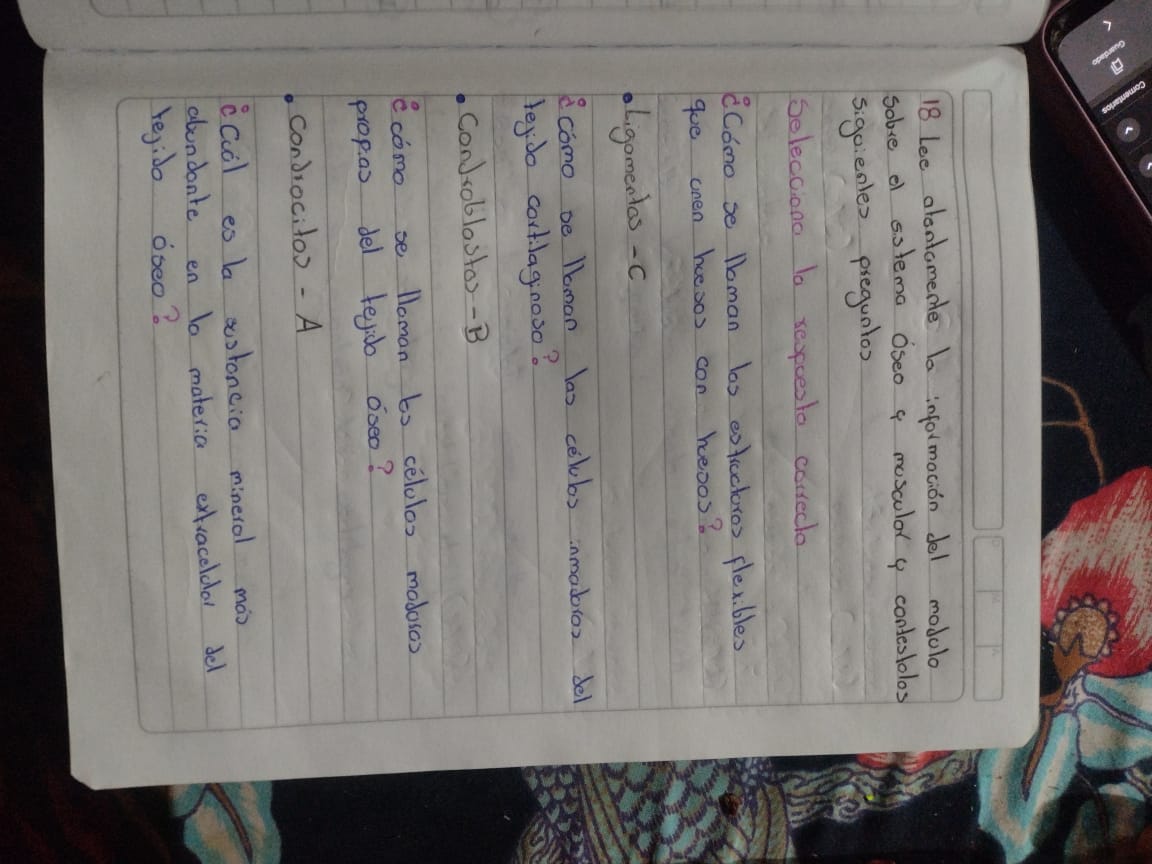 18 Lee atantamente la información del modulo
sobre el sistema óseo y muscular y contestalas
siguientes preguntas
Selecciona la respuesta correcta
¿Cómo se llaman las estructuras flexibles
que unen huesos con huesos?
• Ligamentos - C
¿cómo se llaman las células inmaduras del
tejido cartilaginoso?
• Condroblastos - B
¿cómo se llaman las células maduras
propias del tejido óseo?
• Condrocitos - A
¿Cuál es la sustancia mineral más
abundante en la materia extracelular del
tejido óseo?
Guardado
Comentarios